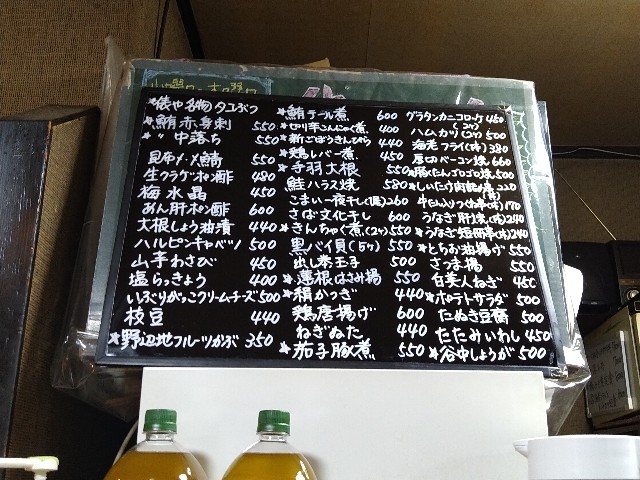 鮪赤身刺 550
〃 中落ち 550
昆布〆〆鯖 550
生クラゲポン酢 480
梅水晶 450
あん肝ポン酢 600
大根しょう油漬 440
ハルピンキャベツ 500
山芋わさび 450
塩らっきょう 400
いぶりがっこクリームチーズ 500
枝豆 440
★野辺地フルーツかぶ 350
★鮪テール煮 600
★切り芋こんにゃく煮 400
★新ごぼうきんぴら 440
★鶏レバー煮 450
★手羽大根 550
鮭ハラス焼 580
こまい一夜干し 260
さば文化干し 600
★きんちゃく煮(2ヶ) 550
黒バイ貝(5ヶ) 550
出し巻玉子 500
★蓮根はさみ揚 550
★稲かつぎ 440
鶏唐揚げ 600
ねぎぬた 440
★茄子豚煮 550
グラタンカニコロッケ 450
ハムカツ(2ヶ) 500
海老フライ(1本) 380
厚切ベーコン焼 660
500
220
170
うなぎ肝焼(1本) 240
★うなぎ短冊(1本) 240
★とちお油揚げ 550
さつま揚 550
白美人ねぎ 450
★ポテトサラダ 500
たぬき豆腐 500
たたみいわし 450
★谷中しょうが 500